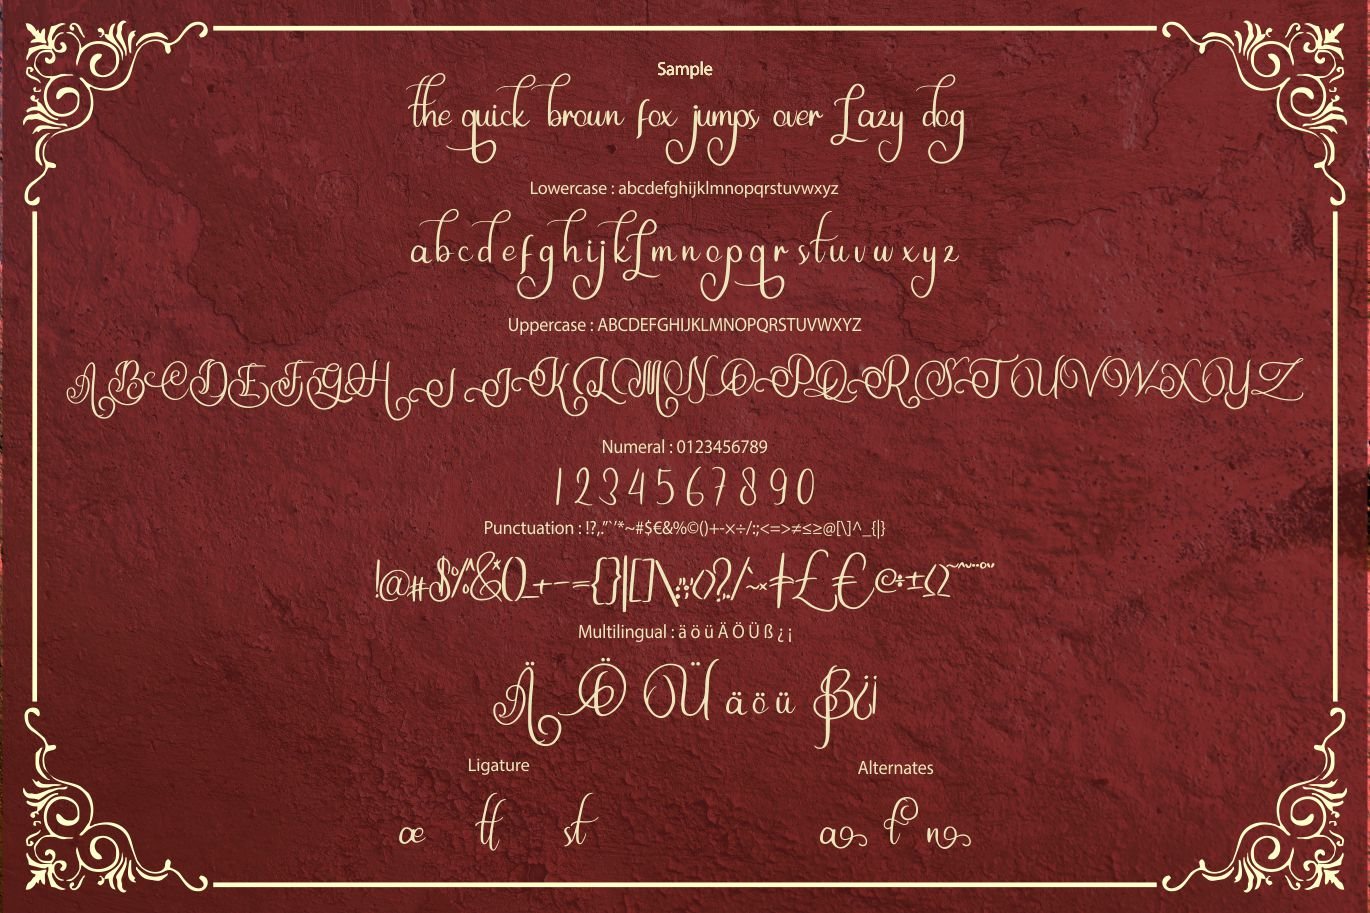 Sample
the quick brown fox jumps over Lazy dog
Lowercase : abcdefghijklmnopqrstuvwxyz
a b c d e f g h i j k L m n o p q r s t u v w x y z
Uppercase : ABCDEFGHIJKLMNOPQRSTUVWXYZ
A B C D E F G H I J K L M N O P Q R S T U V W X Y Z
Numeral : 0123456789
1 2 3 4 5 6 7 8 9 0
Punctuation : !?,."`'*~#$€&%©()+-×÷/:;<=>≠≤≥@[\]^_{|}
Multilingual : ä ö ü Ä Ö Ü ß ¿ ¡
Ä Ö Ü ä ö ü ß ¿ ¡
Ligature
Alternates
æ tt st
a t n